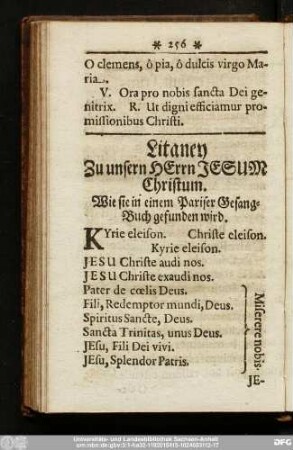 * 256 *
O clemens, ô pia, ô dulcis virgo Ma-
ria.
V. Ora pro nobis sancta Dei ge-
nitrix. R. Ut digni efficiamur pro-
missionibus Christi.
Litaney
Zu unsern HErrn JESUM
Christum.
Wie sie in einem Pariser Gesang-
Buch gefunden wird.
KYrie eleison. Christe eleison.
Kyrie eleison.
JESU Christe audi nos.
JESU Christe exaudi nos.
Pater de cœlis Deus.
Fili, Redemptor mundi, Deus.
Spiritus Sancte, Deus.
Sancta Trinitas, unus Deus.
JEsu, Fili Dei vivi.
JEsu, Splendor Patris.
Miserere nobis.
JE-
Universitäts- und Landesbibliothek Sachsen-Anhalt